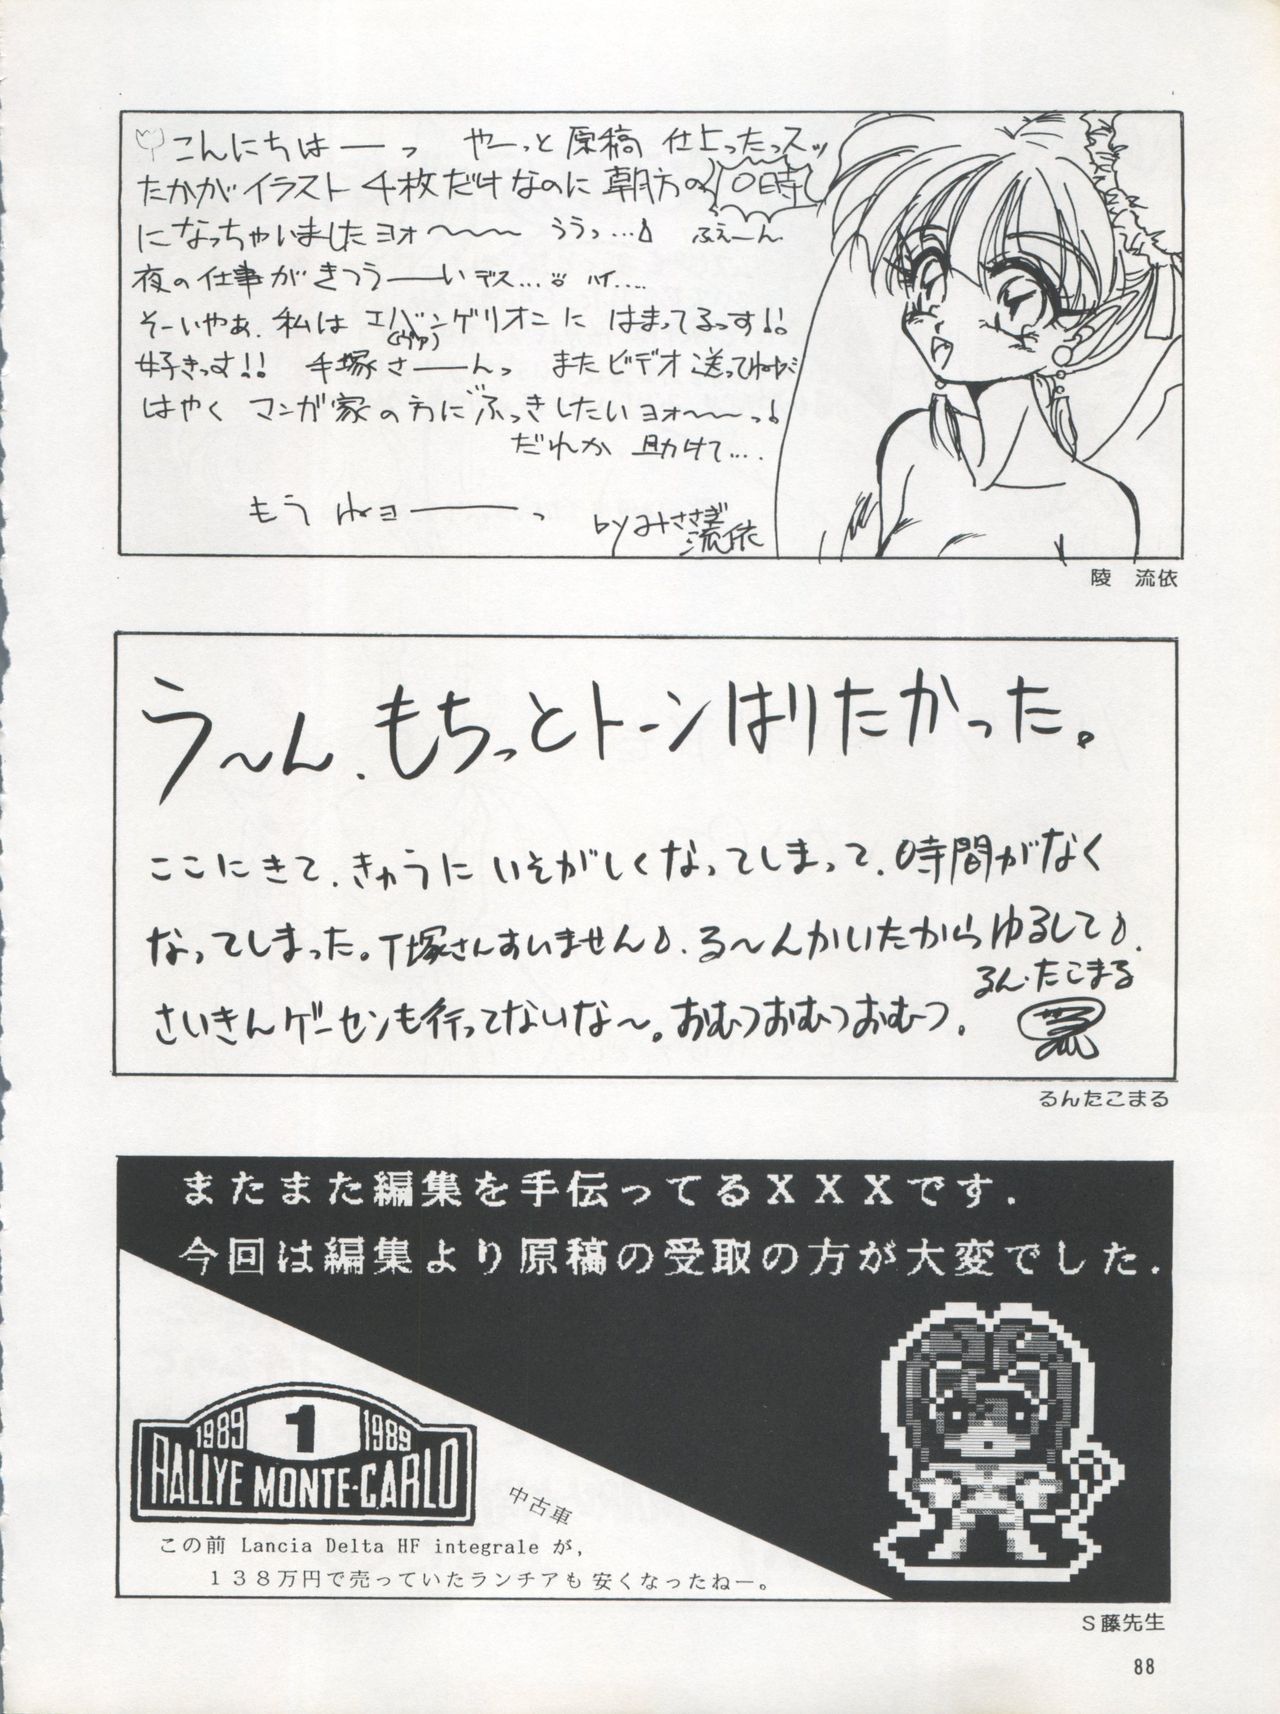 こんにちはーっ やーっと原稿仕上ったっスッ
たかがイラスト4枚だけなのに朝方の10時
になっちゃいましたヨォ〜〜〜 ううっ…♪ ふえーん
夜の仕事がきつうーいデス… ハイ….
そーいやぁ、私はエバンゲリオンにはまってるっす!!
(ヴァ)
好きっす!! 手塚さーんっ またビデオ送ってね
はやくマンガ家の方にふっきしたいヨォ〜〜っ♪
だれか助けて….
もうねョーーっ
by みささぎ
流依
陵 流依
う〜ん、もちっとトーンはりたかった。
ここにきて、きゅうにいそがしくなってしまって、時間がなく
なってしまった。T塚さんすいません♪、る〜んかいたからゆるして♪.
るん・たこまる
さいきんゲーセンも行ってないな〜。おむつおむつおむつ.
るんたこまる
またまた編集を手伝ってるXXXです.
今回は編集より原稿の受取の方が大変でした.
1989 1 1989
RALLYE MONTE-CARLO
中古車
この前 Lancia Delta HF integrale が,
138万円で売っていたランチアも安くなったねー。
S藤先生
88